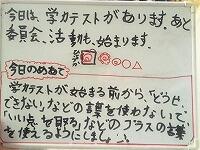 今日は、学力テストがあります。あと
委員会、活動も、始まります。
今日のめあて
学力テストが始まる前から、「どうせ、
できない」などの言葉を使わないで
「いい点を取る」などのプラスの言葉
を使えるようにしましょう。